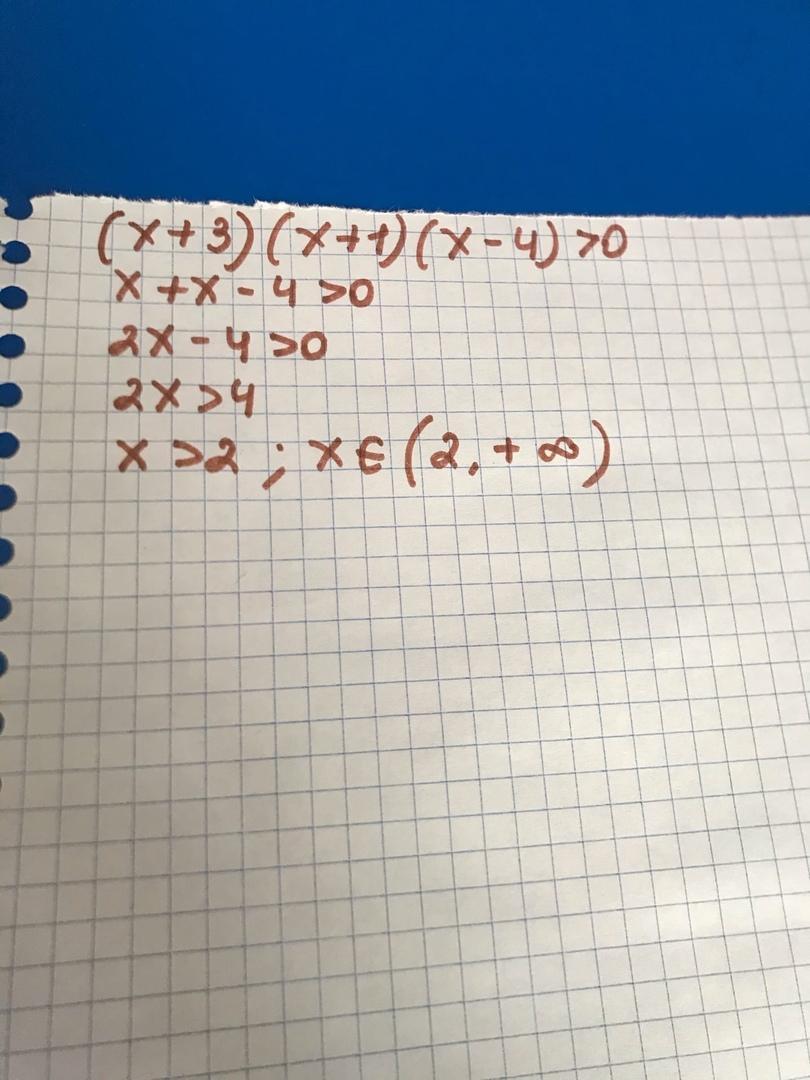 (x+3)(x+1)(x-4)>0
x+x-4>0
2x-4>0
2x>4
x>2; x∈(2,+∞)